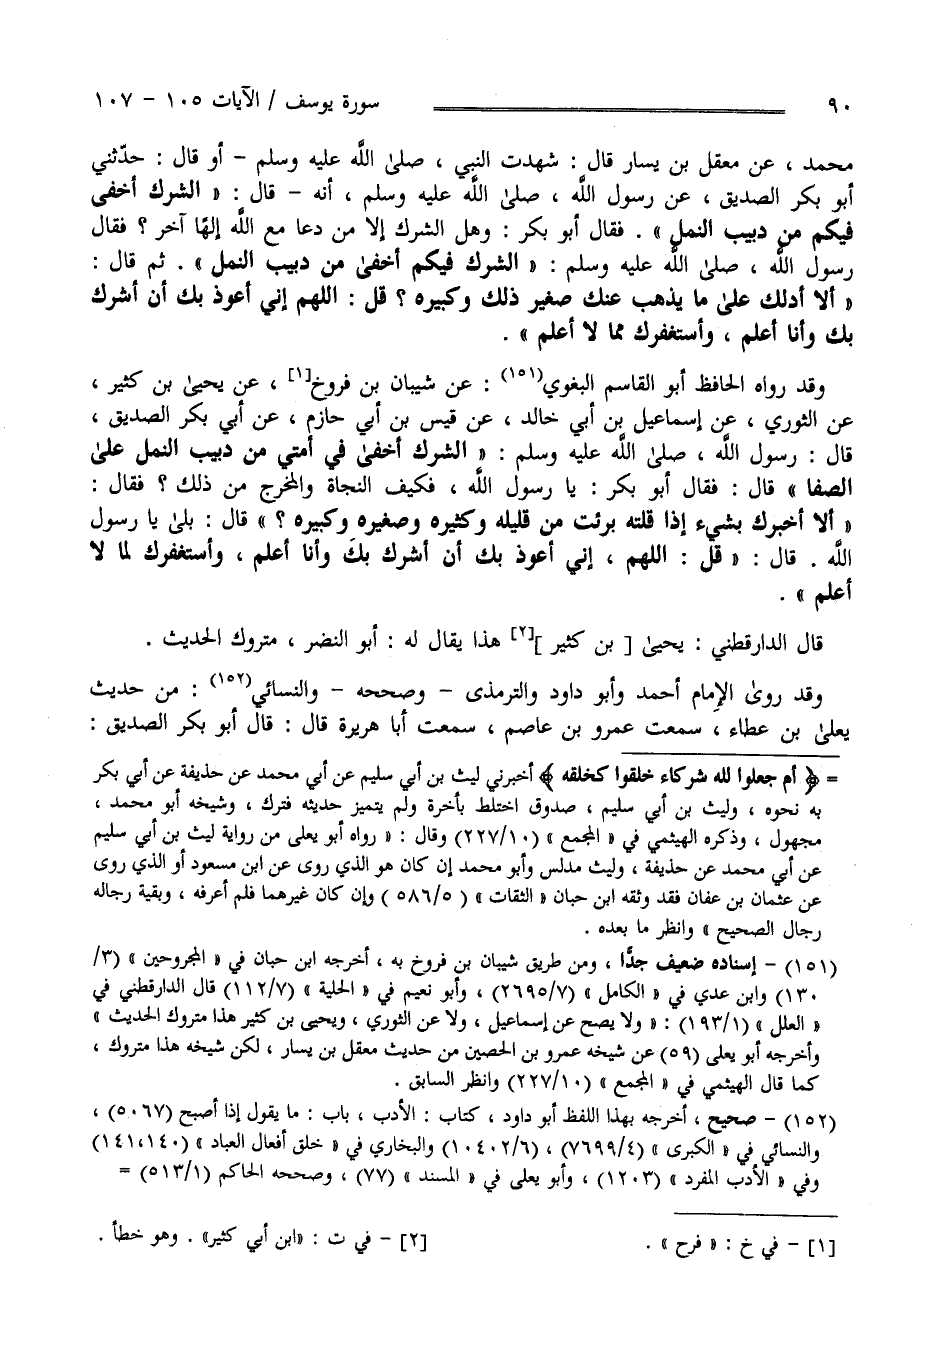 ٩٠ سورة يوسف / الآيات ١٠٥ - ١٠٧
محمد ، عن معقل بن يسار قال : شهدت النبي ، صلى الله عليه وسلم - أو قال : حدّثني
أبو بكر الصديق ، عن رسول الله ، صلى الله عليه وسلم ، أنه - قال : « الشرك أخفى
فيكم من دبيب النمل » . فقال أبو بكر : وهل الشرك إلا من دعا مع الله إلهًا آخر ؟ فقال
رسول الله ، صلى الله عليه وسلم : « الشرك فيكم أخفىٰ من دبيب النمل » . ثم قال :
« ألا أدلك علىٰ ما يذهب عنك صغير ذلك وكبيره ؟ قل : اللهم إني أعوذ بك أن أشرك
بك وأنا أعلم ، وأستغفرك مما لا أعلم » .
وقد رواه الحافظ أبو القاسم البغوي(١٥١) : عن شيبان بن فروخ[١] ، عن يحيىٰ بن كثير ،
عن الثوري ، عن إسماعيل بن أبي خالد ، عن قيس بن أبي حازم ، عن أبي بكر الصديق ،
قال : رسول الله ، صلى الله عليه وسلم : « الشرك أخفىٰ في أمتي من دبيب النمل علىٰ
الصفا » قال : فقال أبو بكر : يا رسول الله ، فكيف النجاة والمخرج من ذلك ؟ فقال :
« ألا أخبرك بشيء إذا قلته برئت من قليله وكثيره وصغيره وكبيره ؟ » قال : بلىٰ يا رسول
الله . قال : « قل : اللهم ، إني أعوذ بك أن أشرك بكَ وأنا أعلم ، وأستغفرك لما لا
أعلم » .
قال الدارقطني : يحيىٰ [ بن كثير ][٢] هذا يقال له : أبو النضر ، متروك الحديث .
وقد روىٰ الإمام أحمد وأبو داود والترمذى - وصححه - والنسائي(١٥٢) : من حديث
يعلىٰ بن عطاء ، سمعت عمرو بن عاصم ، سمعت أبا هريرة قال : قال أبو بكر الصديق :
= ﴿ أم جعلوا لله شركاء خلقوا كخلقه ﴾ أخبرني ليث بن أبي سليم عن أبي محمد عن حذيفة عن أبي بكر
به نحوه ، وليث بن أبي سليم ، صدوق اختلط بأخرة ولم يتميز حديثه فترك ، وشيخه أبو محمد ،
مجهول ، وذكره الهيثمي في « المجمع » (٢٢٧/١٠) وقال : « رواه أبو يعلى من رواية ليث بن أبي سليم
عن أبي محمد عن حذيفة ، وليث مدلس وأبو محمد إن كان هو الذي روى عن ابن مسعود أو الذي روى
عن عثمان بن عفان فقد وثقه ابن حبان « الثقات » ( ٥٨٦/٥ ) وإن كان غيرهما فلم أعرفه ، وبقية رجاله
رجال الصحيح » وانظر ما بعده .
(١٥١) - إسناده ضعيف جدًّا ، ومن طريق شيبان بن فروخ به ، أخرجه ابن حبان في « المجروحين » (٣/
١٣٠) وابن عدي في « الكامل » (٢٦٩٥/٧) ، وأبو نعيم في « الحلية » (١١٢/٧) قال الدارقطني في
« العلل » (١٩٣/١) : « ولا يصح عن إسماعيل ، ولا عن الثوري ، ويحيى بن كثير هذا متروك الحديث »
وأخرجه أبو يعلى (٥٩) عن شيخه عمرو بن الحصين من حديث معقل بن يسار ، لكن شيخه هذا متروك ،
كما قال الهيثمي في « المجمع » (٢٢٧/١٠) وانظر السابق .
(١٥٢) - صحيح ، أخرجه بهذا اللفظ أبو داود ، كتاب : الأدب ، باب : ما يقول إذا أصبح (٥٠٦٧) ،
والنسائي في « الكبرى » (٧٦٩٩/٤) ، (١٠٤٠٢/٦) والبخاري في « خلق أفعال العباد » (١٤١،١٤٠)
وفي « الأدب المفرد » (١٢٠٣) ، وأبو يعلى في « المسند » (٧٧) ، وصححه الحاكم (٥١٣/١) =
[١] - في خ : « فرح » . [٢] - في ت : «ابن أبي كثير» . وهو خطأ .